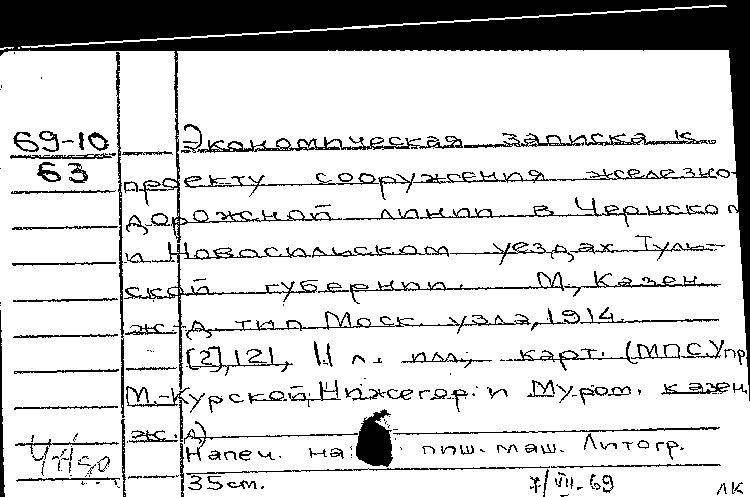 69-10 Экономическая записка к
63
проекту сооружения железно-
дорожной линии в Чернском
и Новосильском уездах Туль-
ской губернии. М., Казен.
ж.-д. тип. Моск. узла, 1914.
[2], 121, 11 л. илл., карт. (МПС. Упр.
М.-Курской, Нижегор. и Муром. казен.
ж. д.)
Напеч. на пиш. маш. Литогр.
35 см. 7/VII-69 ЛК